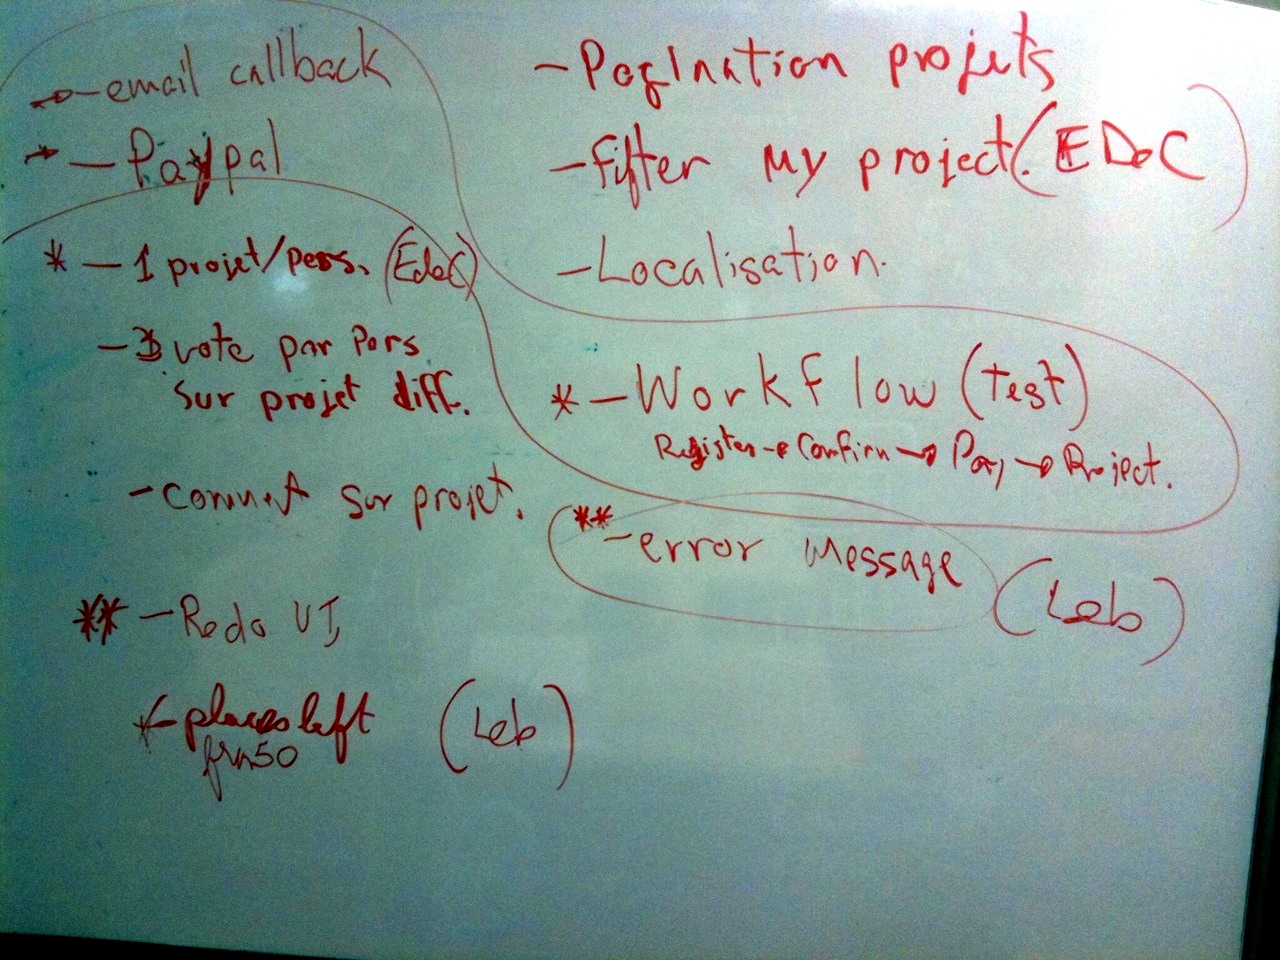 - email callback
- Paypal
* - 1 projet/pers. (EdoC)
- 3 vote par Pers
sur projet diff.
- comment sur projet.
** - Redo UI
- places left (Leb)
frm50
- Pagination projets
- Filter My project. (EDoC)
- Localisation.
* - Workflow (Test)
Register → Confirm → Pay → Project.
** - error message (Leb)